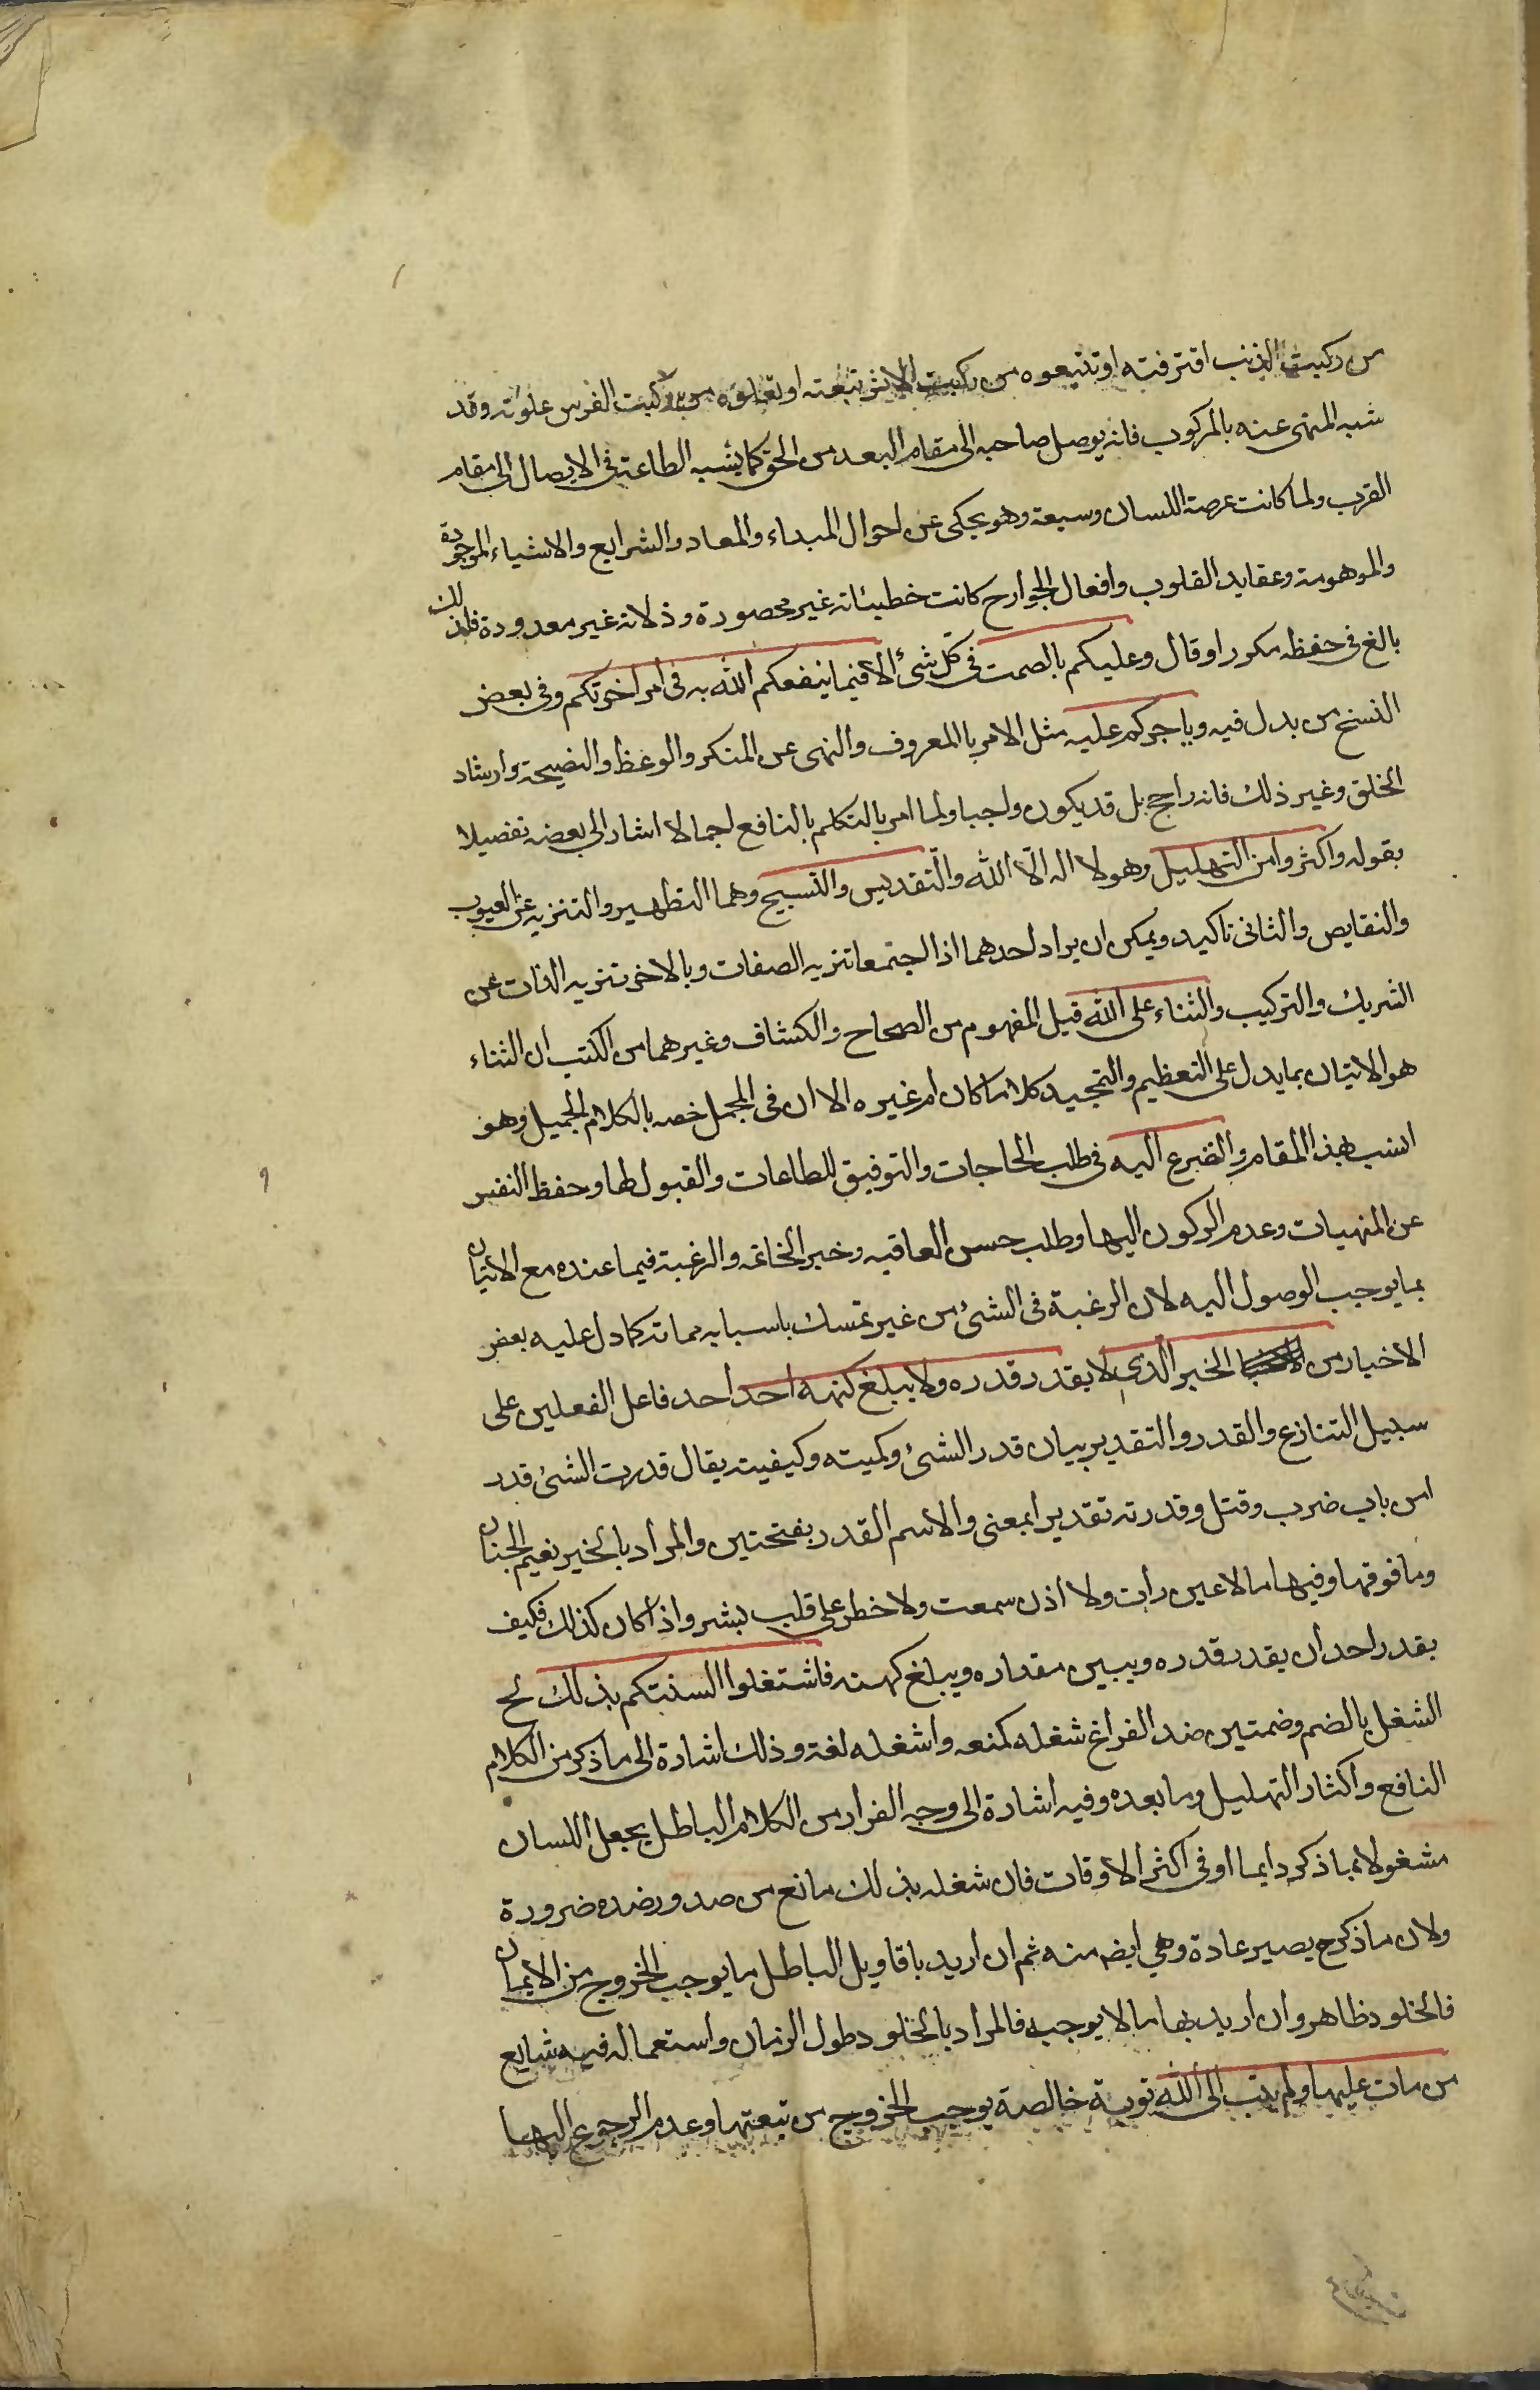 من ركبت الذنب اقترفته او تتبعوه من ركبت الاثر تبعته او تعلوه من ركبت الفرس علوته وقد
شبه المنهى عنه بالمركوب فانه يوصل صاحبه الى مقام البعد من الحق كما يشبه الطاعة فى الايصال الى مقام
القرب ولما كانت عرصة اللسان وسيعة وهو يحكى عن احوال المبداء والمعاد والشرايع والاشياء الموجودة
والموهومة وعقايد القلوب وافعال الجوارح كانت خطيئاته غير محصورة وذلاته غير معدودة فلذلك
بالغ فى حفظه مكررا وقال وعليكم بالصمت فى كل شئ الا فيما ينفعكم الله به فى امر اخرتكم وفى بعض
النسخ من بدل فيه وياجركم عليه مثل الامر بالمعروف والنهى عن المنكر والوعظ والنصيحة وارشاد
الخلق وغير ذلك فانه راجح بل قد يكون واجبا ولما امر بالتكلم بالنافع اجمالا اشار الى بعضه تفصيلا
بقوله واكثروا من التهليل وهو لا اله الا الله والتقديس والتسبيح وهما التطهير والتنزيه عن العيوب
والنقايص والثانى تاكيد ويمكن ان يراد احدهما اذا اجتمعا تنزيه الصفات وبالاخر تنزيه الذات عن
الشريك والتركيب والثناء على الله قيل المفهوم من الصحاح والكشاف وغيرهما من الكتب ان الثناء
هو الاتيان بما يدل على التعظيم والتمجيد كلاما كان ام غيره الا ان فى المجمل خصه بالكلام الجميل وهو
انسب بهذا المقام والتضرع اليه فى طلب الحاجات والتوفيق للطاعات والقبول لها وحفظ النفس
عن المنهيات وعدم الركون اليها وطلب حسن العاقبه وخير الخاتمه والرغبة فيما عنده مع الاتيان
بما يوجب الوصول اليه لان الرغبة فى الشئ من غير تمسك باسبابه حماقة كما دل عليه بعض
الاخبار من الخير الذى لا يقدر قدره ولا يبلغ كنهه احد احد فاعل الفعلين على
سبيل التنازع والقدر والتقدير بيان قدر الشئ وكميته وكيفيته يقال قدرت الشئ قدر
ا من باب ضرب وقتل وقدرته تقديرا بمعنى والاسم القدر بفتحتين والمراد بالخير نعيم الجنان
وما فوقها وفيها ما لا عين رات ولا اذن سمعت ولا خطر على قلب بشر واذا كان كذلك فكيف
يقدر احد ان يقدر قدره ويبين مقداره ويبلغ كهنه فاشتغلوا السنتكم بذلك لح
الشغل بالضم وضمتين ضد الفراغ شغله كمنعه واشغله لغة وذلك اشارة الى ما ذكر من الكلام
النافع واكثار التهليل وما بعده وفيه اشارة الى وجه الفرار من الكلام الباطل بجعل اللسان
مشغولا بما ذكر دايما او فى اكثر الاوقات فان شغله بذلك مانع من صدور ضده ضرورة
ولان ما ذكرح يصير عادة وهي ايضه منه ثم ان اريد باقاويل الباطل ما يوجب الخروج من الايمان
فالخلود ظاهر وان اريد بها ما لا يوجبه فالمراد بالخلود طول الزمان واستعماله فيه شايع
من مات عليها ولم يتب الى الله توبة خالصة يوجب الخروج من تبعتها وعدم الرجوع اليها